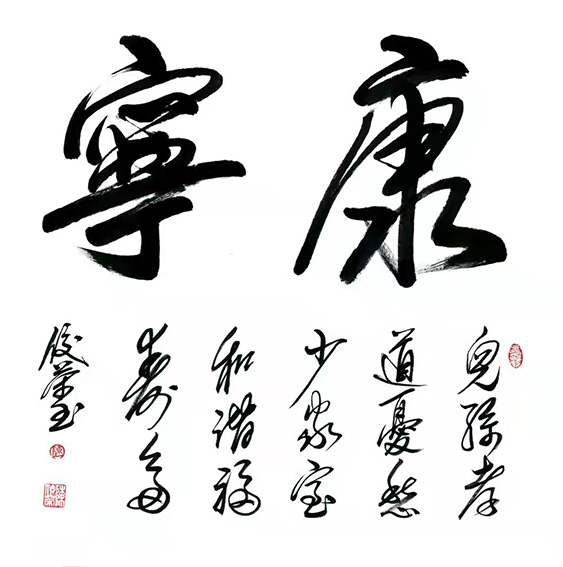 康寧
兒孫孝
道憂愁
少家室
和諧福
壽多